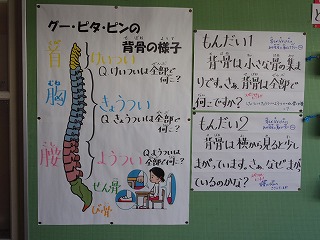 グー・ピタ・ピンの
背骨の様子
首 けいつい
Q.けいついは全部で
何こ?
胸 きょうつい
Q.きょうついは全部で
何こ?
腰 ようつい
Q.ようついは
全部で何こ?
せん骨
び骨
もんだい1
背骨は小さな骨の集ま
りです。さぁ、背骨は全部で
何こですか?
もんだい2
背骨は横から見ると少し
まがっています。さぁ、なぜまがっ
ているのかな?